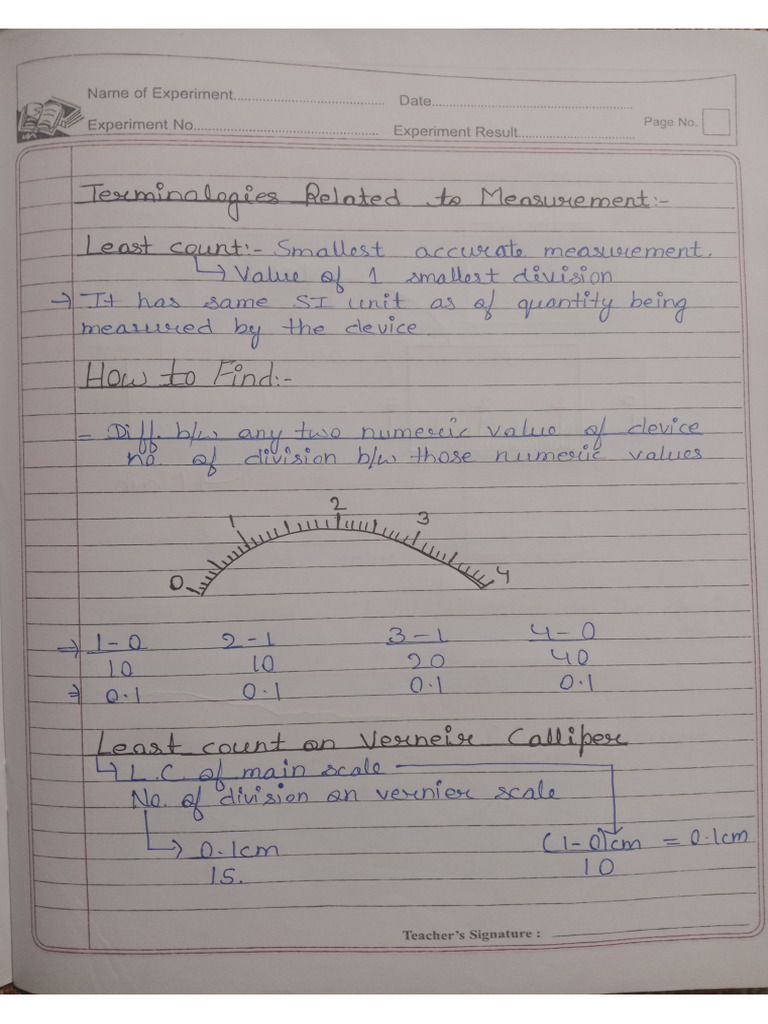 Name of Experiment........................................ Date........................................
Experiment No........................................ Experiment Result........................................ Page No.
Terminalogies Related to Measurement:-
Least count:- Smallest accurate measurement.
↳ Value of 1 smallest division
→ It has same SI unit as of quantity being
measured by the device.
How to Find:-
- Diff. b/w any two numeric value of device
no. of division b/w those numeric values
0 1 2 3 4
⇒ 1-0 2-1 3-1 4-0
10 10 20 40
⇒ 0.1 0.1 0.1 0.1
Least count on Verneir Calliper
↳ L.C. of main scale
No. of division on vernier scale
↳ 0.1cm (1-0)cm = 0.1cm
15. 10
Teacher's Signature :